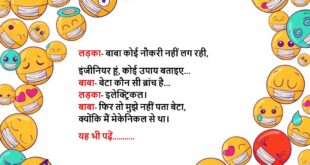 लड़का- बाबा कोई नौकरी नहीं लग रही,
इंजीनियर हूं, कोई उपाय बताइए...
बाबा- बेटा कौन सी ब्रांच है...
लड़का- इलेक्ट्रिकल।
बाबा- फिर तो मुझे नहीं पता बेटा,
क्योंकि मैं मेकेनिकल से था।
यह भी पढ़ें...........